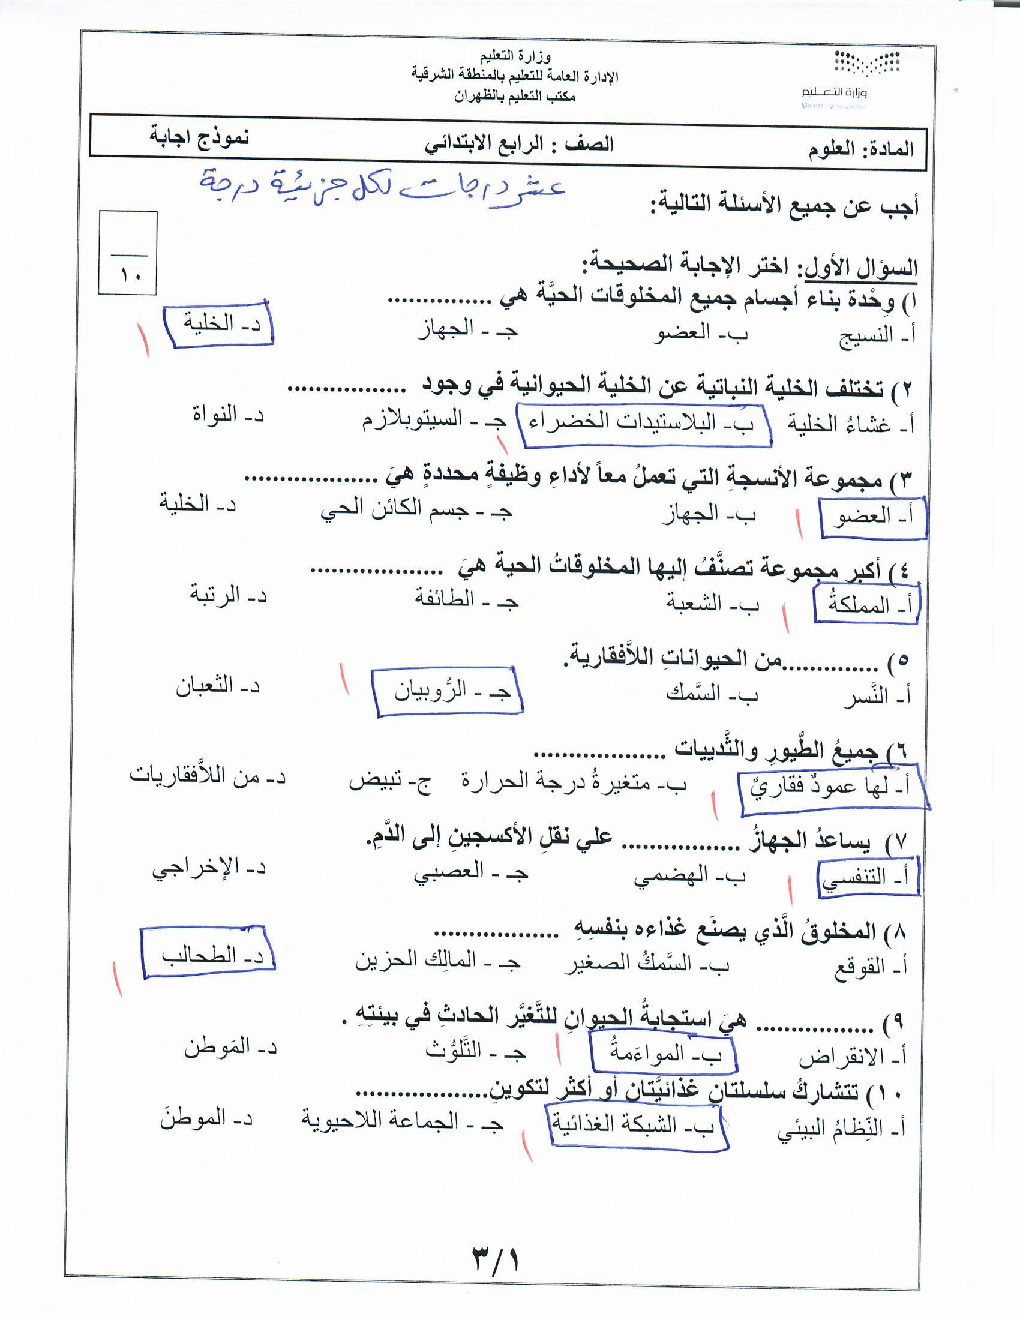 وزارة التعليم
الإدارة العامة للتعليم بالمنطقة الشرقية
مكتب التعليم بالظهران
وزارة التعليم
المادة: العلوم الصف : الرابع الابتدائي نموذج اجابة
عشر درجات لكل جزيئية درجة
أجب عن جميع الأسئلة التالية:
١٠
السؤال الأول: اختر الإجابة الصحيحة:
١) وحْدة بناء أجسام جميع المخلوقات الحيَّة هي ...............
أ- النسيج ب- العضو جـ - الجهاز د- الخلية
٢) تختلف الخلية النباتية عن الخلية الحيوانية في وجود ................
أ- غشاءُ الخلية ب- البلاستيدات الخضراء جـ - السيتوبلازم د- النواة
٣) مجموعة الأنسجةِ التي تعملُ معاً لأداءِ وظيفةٍ محددةٍ هيَ ..................
أ- العضو ب- الجهاز جـ - جسم الكائن الحي د- الخلية
٤) أكبر مجموعة تصنَّفُ إليها المخلوقاتُ الحية هيَ ..................
أ- المملكةُ ب- الشعبة جـ - الطائفة د- الرتبة
٥) .............من الحيواناتِ اللاَّفقارية.
أ- النَّسر ب- السَّمك جـ - الرُّوبيان د- الثعبان
٦) جميعُ الطُّيورِ والثَّدييات ..................
أ- لها عمودٌ فقاريٌ ب- متغيرةُ درجة الحرارة ج- تبيض د- من اللاَّفقاريات
٧) يساعدُ الجهازُ ................ علي نقلِ الأكسجينِ إلى الدَّمِ.
أ- التنفسي ب- الهضمي جـ - العصبي د- الإخراجي
٨) المخلوقُ الَّذي يصنَع غذاءه بنفسِهِ .................
أ- القوقع ب- السَّمكُ الصغير جـ - المالك الحزين د- الطحالب
٩) ................ هيَ استجابةُ الحيوانِ للتَّغيُّر الحادثِ في بيئتِهِ .
أ- الانقراض ب- المواءمةُ جـ - التَّلوُّث د- المَوطن
١٠) تتشاركُ سلسلتانِ غذائيَّتانِ أو أكثر لتكوينِ..................
أ- النِّظامُ البيئي ب- الشبكة الغذائية جـ - الجماعة اللاحيوية د- الموطنَ
٣/١